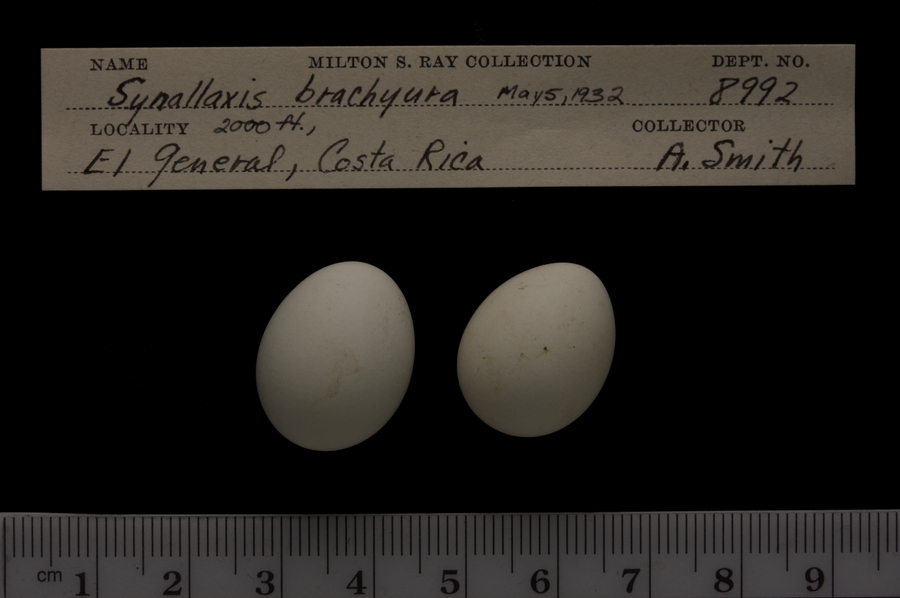 NAME MILTON S. RAY COLLECTION DEPT. NO.
Synallaxis brachyura May 5, 1932 8992
LOCALITY 2000 ft., COLLECTOR
El General, Costa Rica A. Smith
cm 1 2 3 4 5 6 7 8 9